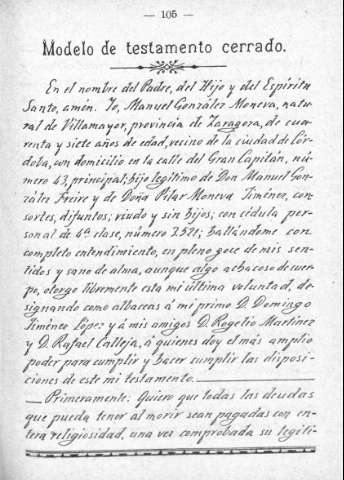 — 105 —
Modelo de testamento cerrado.
En el nombre del Padre, del Hijo y del Espíritu
Santo, amén. Yo, Manuel González Moneva, natu-
ral de Villamayor, provincia de Zaragoza, de cua-
renta y siete años de edad, vecino de la ciudad de Cór-
doba, con domicilio en la calle del Gran Capitán, nú-
mero 43, principal; hijo legítimo de Don Manuel Gon-
zález Freire y de Doña Pilar Moneva Jiménez, con-
sortes, difuntos; viudo y sin hijos; con cédula per-
sonal de 4.ª clase, número 2.521; hallándome con
completo entendimiento, en pleno goce de mis sen-
tidos y sano de alma, aunque algo achacoso de cuer-
po, otorgo libremente esta mi última voluntad, de-
signando como albaceas á mi primo D. Domingo
Jiménez López y á mis amigos D. Rogelio Martínez
y D. Rafael Calleja, á quienes doy el más amplio
poder para cumplir y hacer cumplir las disposi-
ciones de este mi testamento.
Primeramente: Quiero que todas las deudas
que pueda tener al morir sean pagadas con en-
tera religiosidad, una vez comprobada su legiti-